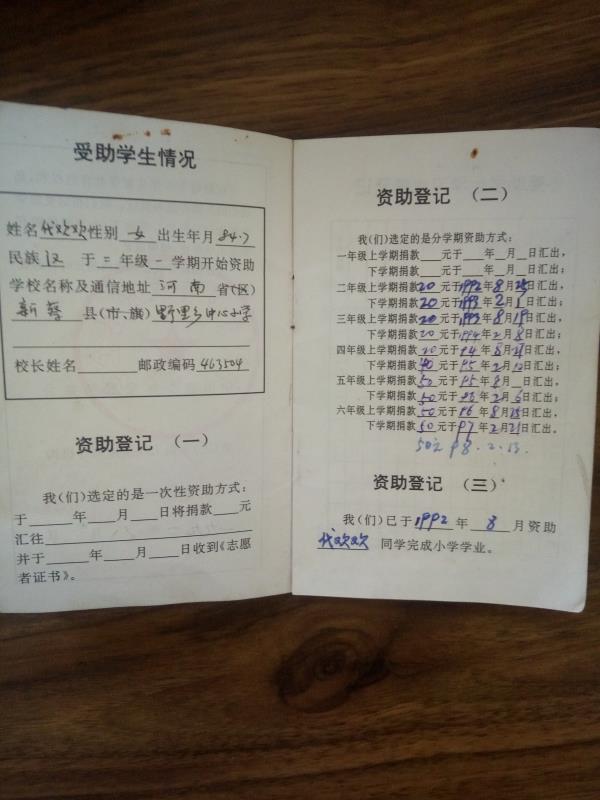 受助学生情况
姓名代欢欢性别 女 出生年月 84.7
民族 汉 于 二 年级 一 学期开始资助
学校名称及通信地址 河南 省(区)
新蔡 县(市、旗) 野里乡中心小学
校长姓名______邮政编码 463504
资助登记 （一）
我(们)选定的是一次性资助方式：
于______年____月____日将捐款____元
汇往
并于______年____月____日收到《志愿
者证书》。
资助登记 （二）
我(们)选定的是分学期资助方式：
一年级上学期捐款___元于___年__月__日汇出，
下学期捐款___元于___年__月__日汇出；
二年级上学期捐款20元于1992年8月25日汇出，
下学期捐款20元于1993年2月1日汇出；
三年级上学期捐款20元于1993年8月19日汇出，
下学期捐款20元于1994年2月8日汇出；
四年级上学期捐款20元于94年8月29日汇出，
下学期捐款40元于95年2月12日汇出；
五年级上学期捐款50元于95年8月__日汇出，
下学期捐款50元于96年2月6日汇出；
六年级上学期捐款50元于96年8月25日汇出，
下学期捐款50元于97年2月21日汇出。
50元 98.2.13.
资助登记 （三）
我(们)已于1992年 8 月资助
代欢欢 同学完成小学学业。